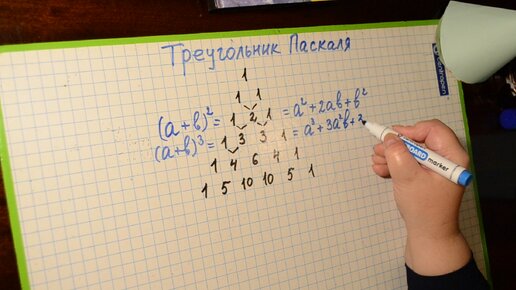 Треугольник Паскаля
1
1 1
(a+b)² = 1 2 1 = a² + 2ab + b²
(a+b)³ = 1 3 3 1 = a³ + 3a²b + 3
1 4 6 4 1
1 5 10 10 5 1
BOARD marker